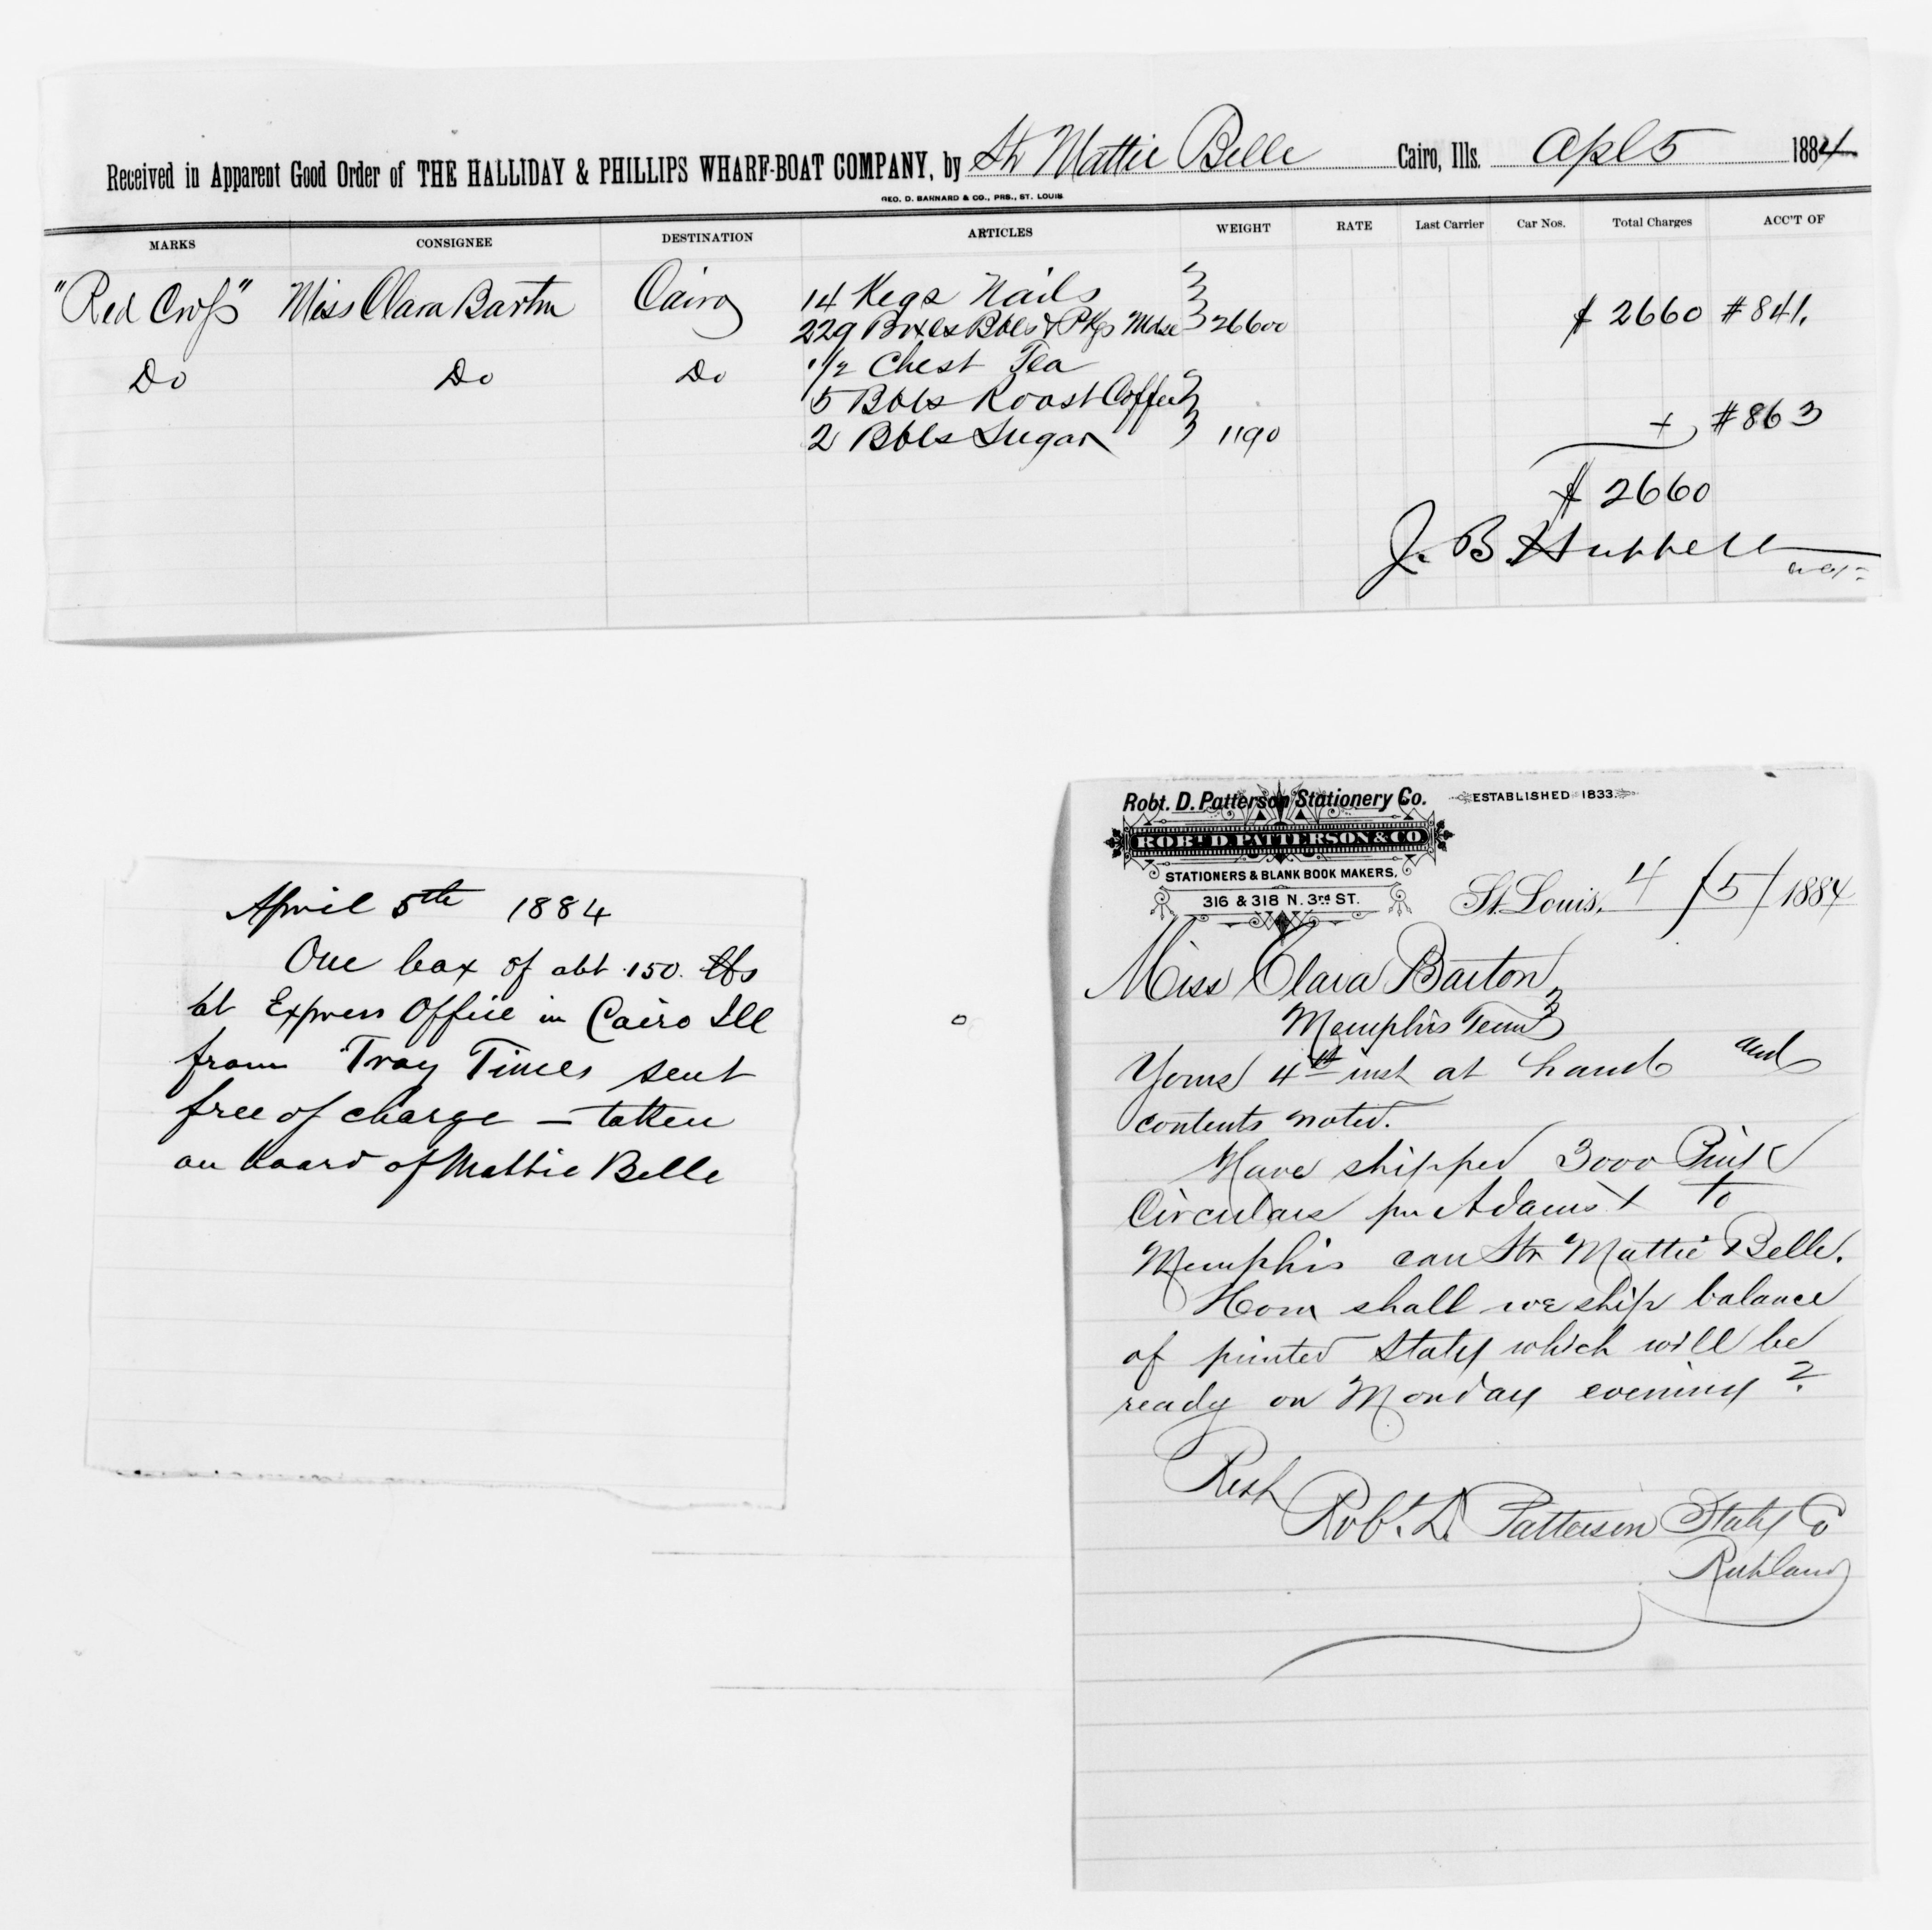 Received in Apparent Good Order of THE HALLIDAY & PHILLIPS WHARF-BOAT COMPANY, by Str Mattie Belle Cairo, Ills. Apl 5 1884
GEO. D. BARNARD & CO., PRS., ST. LOUIS
MARKS CONSIGNEE DESTINATION ARTICLES WEIGHT RATE Last Carrier Car Nos. Total Charges ACC'T OF
"Red Cross" Miss Clara Barton Cairo 14 Kegs Nails
229 Boxes Bbls & Pkgs Mdse 26600 $ 2660 #841.
Do Do Do 1/2 Chest Tea
5 Bbls Roast Coffee
2 Bbls Sugar 1190 + #863
$ 2660
J. B. Hubbell
April 5th 1884
One box of abt 150 lbs
at Express Office in Cairo Ill
from Troy Times sent
free of charge – taken
on board of Mattie Belle
Robt. D. Patterson Stationery Co. ESTABLISHED 1833.
ROBT. D. PATTERSON & CO
STATIONERS & BLANK BOOK MAKERS,
316 & 318 N. 3rd ST.
St. Louis, 4/5/1884
Miss Clara Barton
Memphis Tenn
Yours 4th inst at hand and
contents noted.
Have shipped 3000
Circulars pr Adams X to
Memphis care Str "Mattie Belle.
How shall we ship balance
of printed Staty which will be
ready on Monday evening?
Resp
Robt. D. Patterson Staty Co
Ruhland